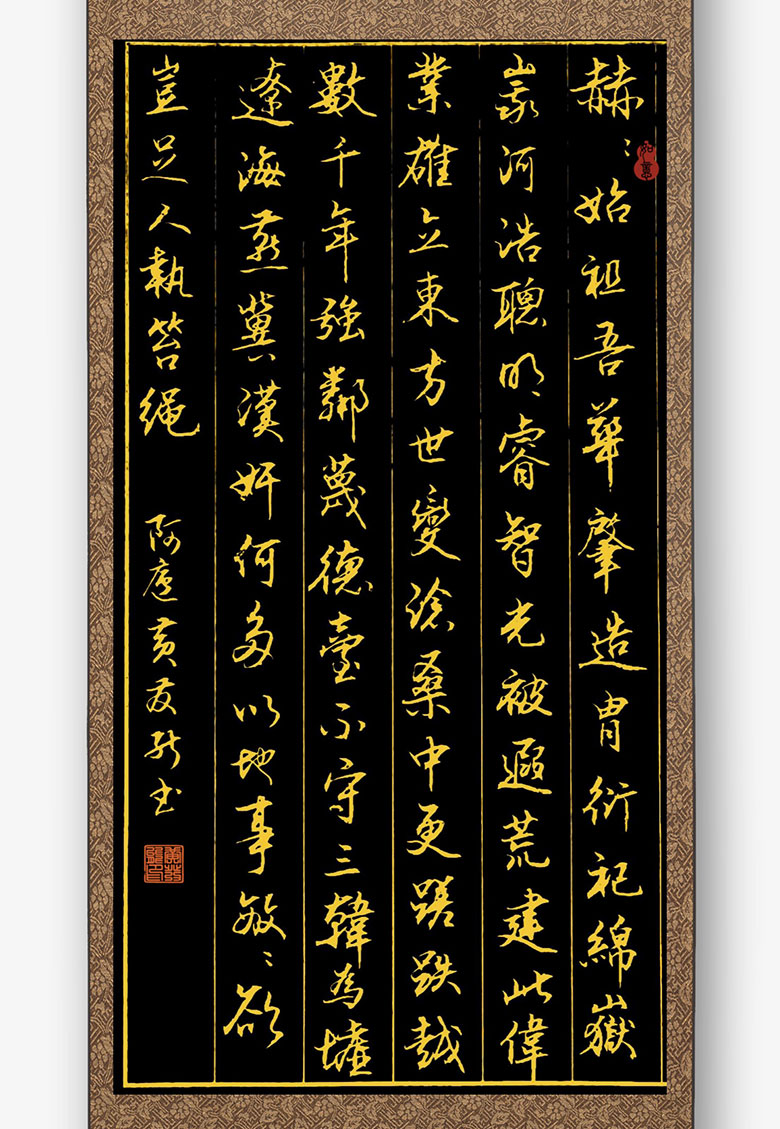 赫〻始祖吾華肇造胄衍祀綿嶽
峩河浩聰明睿智光被遐荒建此偉
業雄立東方世變滄桑中更蹉跌越
數千年強鄰蔑德臺不守三韓為墟
遼海燕冀漢奸何多以地事敵〻欲
豈足人執笞繩
阿廬黃发能书
如意